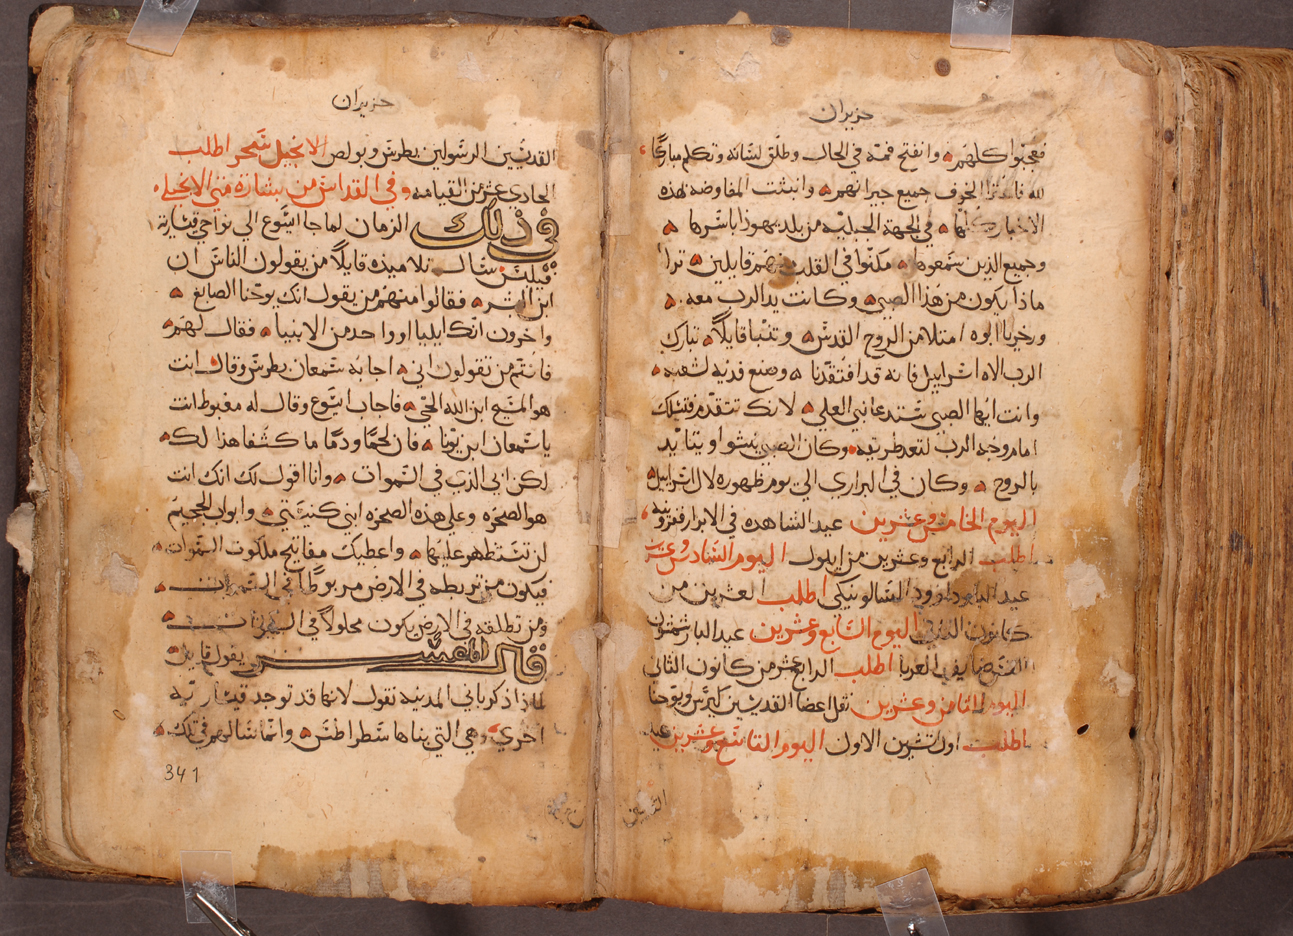 حزيران
فعجبوا كلهم وانفتح فمه في الحال وطلق لسانه وتكلم مباركا
لله الخوف جميع جيرانهم وانبثت المفاوضه بهذه
الاخبار كلها في الجهة الجبليه من بلد يهوذا باسرها
وجميع الذين سمعوها مكنوا في قلوبهم قايلين ترا
ماذا يكون من هذا الصبي وكانت يد الرب معه
وزخريا ابوه امتلا من الروح القدس وتنبا قايلا تبارك
الرب الاه اسراييل فانه قد افتقدنا وصنع فديه لشعبه
وانت ايها الصبي ستدعا نبي العلي لانك تتقدم فتسلك
امام وجه الرب لتعد طريقه وكان الصبي ينشو او يتايد
بالروح وكان في البراري الي يوم ظهوره لال اسراييل
اليوم الخامس وعشرين عيد الشاهده في الابرار فبرونيه
اطلب الرابع وعشرين من ايلول اليوم السادس وعشرين
عيد البار داوود السالونيكي اطلب العشرين من
كانون الثاني اليوم السابع وعشرين عيد البار شمشون
يضايف الغربا اطلب الرابع عشر من كانون الثاني
اليوم الثامن وعشرين نقل اعضا القديسين كيرس ويوحنا
اطلب اول تشرين الاول اليوم التاسع وعشرين عيد
القديسين
حزيران
القديسين الرسولين بطرس وبولص الانجيل سحر اطلب
الحادي عشر من القيامه وفي القداس من بشارة متي الانجيلي
في ذلك الزمان لما جا ايسوع الي نواحي قيسارية
فيلبس سال تلاميذه قايلا من يقولون الناس ان
ابن البشر فقالوا منهم من يقول انك يوحنا الصابغ
واخرون انك ايليا او واحد من الانبيا فقال لهم
فانتم من تقولون اني اجابه سمعان بطرس وقال انت
هو المسيح ابن الله الحي فاجاب ايسوع وقال له مغبوط انت
ياسمعان ابن يونا فان لحما ودما ما كشفا هذا لك
لكن ابي الذي في السموات وانا اقول لك انك انت
هو الصخره وعلي هذه الصخره ابني كنيستي وابواب الجحيم
لن تستطهو عليها واعطيك مفاتيح ملكوت السموات
فيكون من تربطه في الارض مربوطا في السموات
ومن تطلقه في الارض يكون محلولا في السموات
قال المفسر يقول قايل
لماذا ذكر باني المدينه نقول لانها قد توجد قيساريه
اخري وهي التي بناها سطراطس وانما سالهم في تلك
341